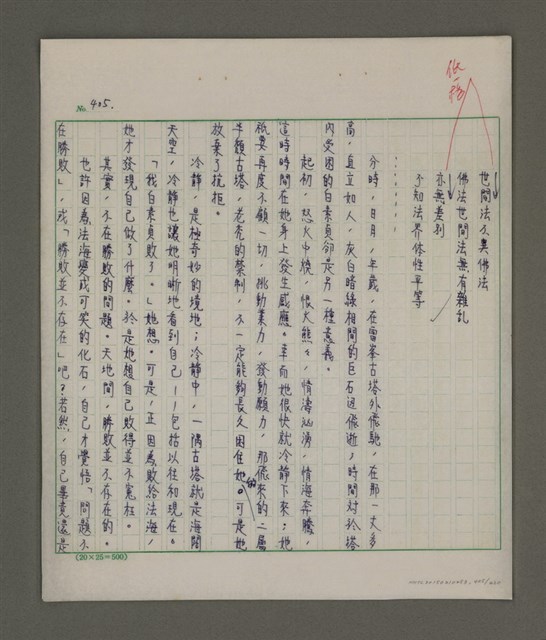 No. 405.
低一格
世間法不異佛法
佛法世間法無有雜乱
亦無差別
予知法界体性平等
…………
分時，日月，年歲，在雷峯古塔外飛馳，在那一丈多
高，直立如人，灰白暗綠相間的巨石邊飛逝；時間对於塔
內受困的白素貞卻是另一種意義。
起初，怒火中燒，恨火熊々，情濤汹湧，情海奔騰，
這時時間在她身上發生感應。幸而她很快就冷靜下來；她
祇要再度不顧一切，挑動業力，發動願力，那飛來的二層
半額古塔，老禿的禁制，不一定能夠長久困住她的。可是她
放棄了抗拒。
冷靜，是極奇妙的境地；冷靜中，一隅古塔就是海闊
天空，冷靜也讓她明晰地看到自己——包括以往和現在。
「我白素貞敗了。」她想。可是，正因為敗給法海，
她才發現自己做了什麼。於是她想自己敗得並不冤枉。
其實，不在勝敗的問題。天地間，勝敗並不存在的。
也許因為法海變成可笑的化石，自己才覺悟「問題不
在勝敗」，或「勝敗並不存在」吧？若然，自己畢竟還是
(20×25=500)